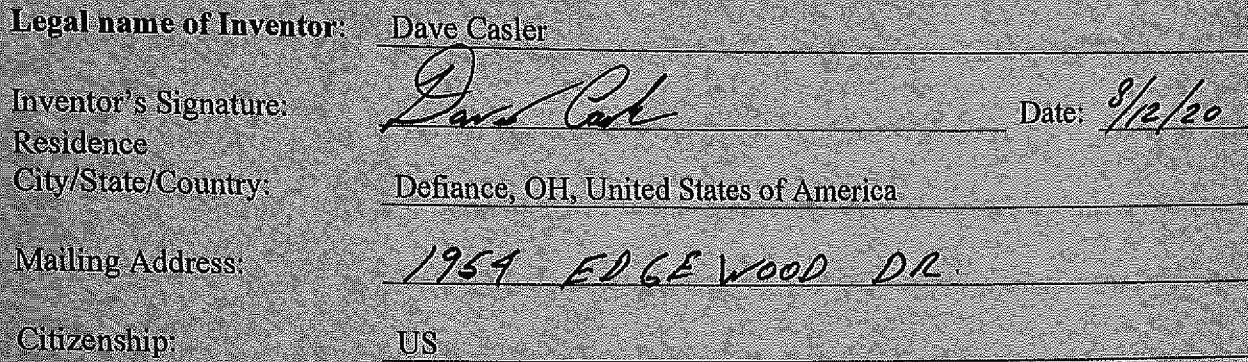 Legal name of Inventor: Dave Casler
Inventor's Signature: Dave Casler Date: 8/12/20
Residence
City/State/Country: Defiance, OH, United States of America
Mailing Address: 1954 EDGEWOOD DR.
Citizenship: US